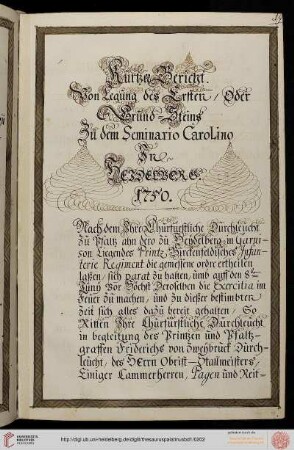 Kurtzer Bericht.
Von Legung des Ersten, Oder
Grund Steins
Zu dem Seminario Carolino
In
Heydelberg
1750.
Nach dem Ihro Churfürstliche Dürchleücht
Zu Pfaltz ahn dero zu Heydelberg in Garni-
son Liegendes Printz Birckenfeldisches Infan-
terie Regiment die gemessene ordre ertheilen
laßen, sich parat zu halten, umb auff den 8ten
Juny vor Höchst Deroselben die Exercitia im
feüer zu machen, und zu dießer bestimbten
Zeit sich alles dazu bereit gehalten, So
Ritten Ihre Churfürstliche Dürchleücht
in begleitung des Printzen und Pfaltz-
graffen Friderichs von Zweybrück Dürch-
leücht, des Herrn Obrist-Stallmeisters,
Einiger Cammerherren, Pagen und Reit-
http://digi.ub.uni-heidelberg.de/diglit/thesauruspalatinus5bf1/0203